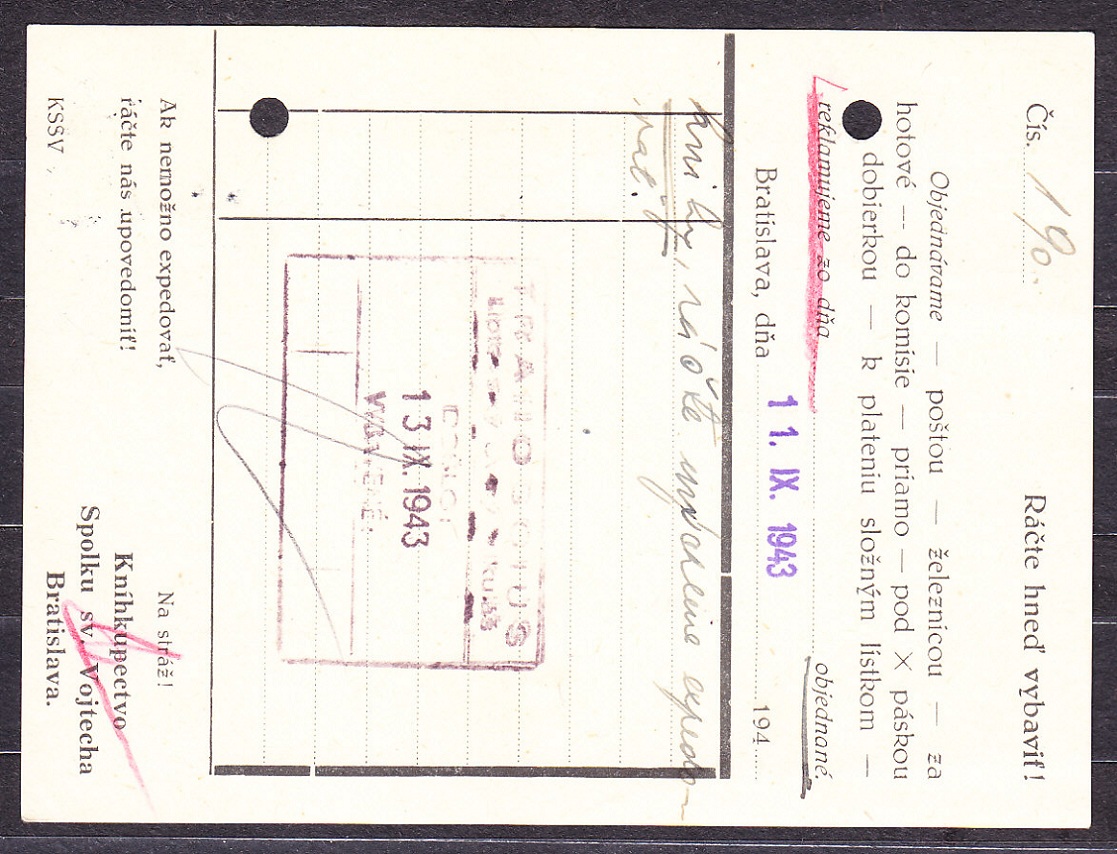 Čís. 190. Ráčte hneď vybaviť!
Objednávame — poštou — železnícou — za
hotové — do komisie — priamo — pod X páskou
dobierkou — k plateniu složným lístkom —
reklamujeme zo dňa objednané.
Bratislava, dňa 11. IX. 1943 194
Knihy, ráčte
13 IX. 1943
Ak nemožno expedovať,
ráčte nás upovedomiť!
KSSV
Na stráž!
Kníhkupectvo
Spolku sv. Vojtecha
Bratislava.